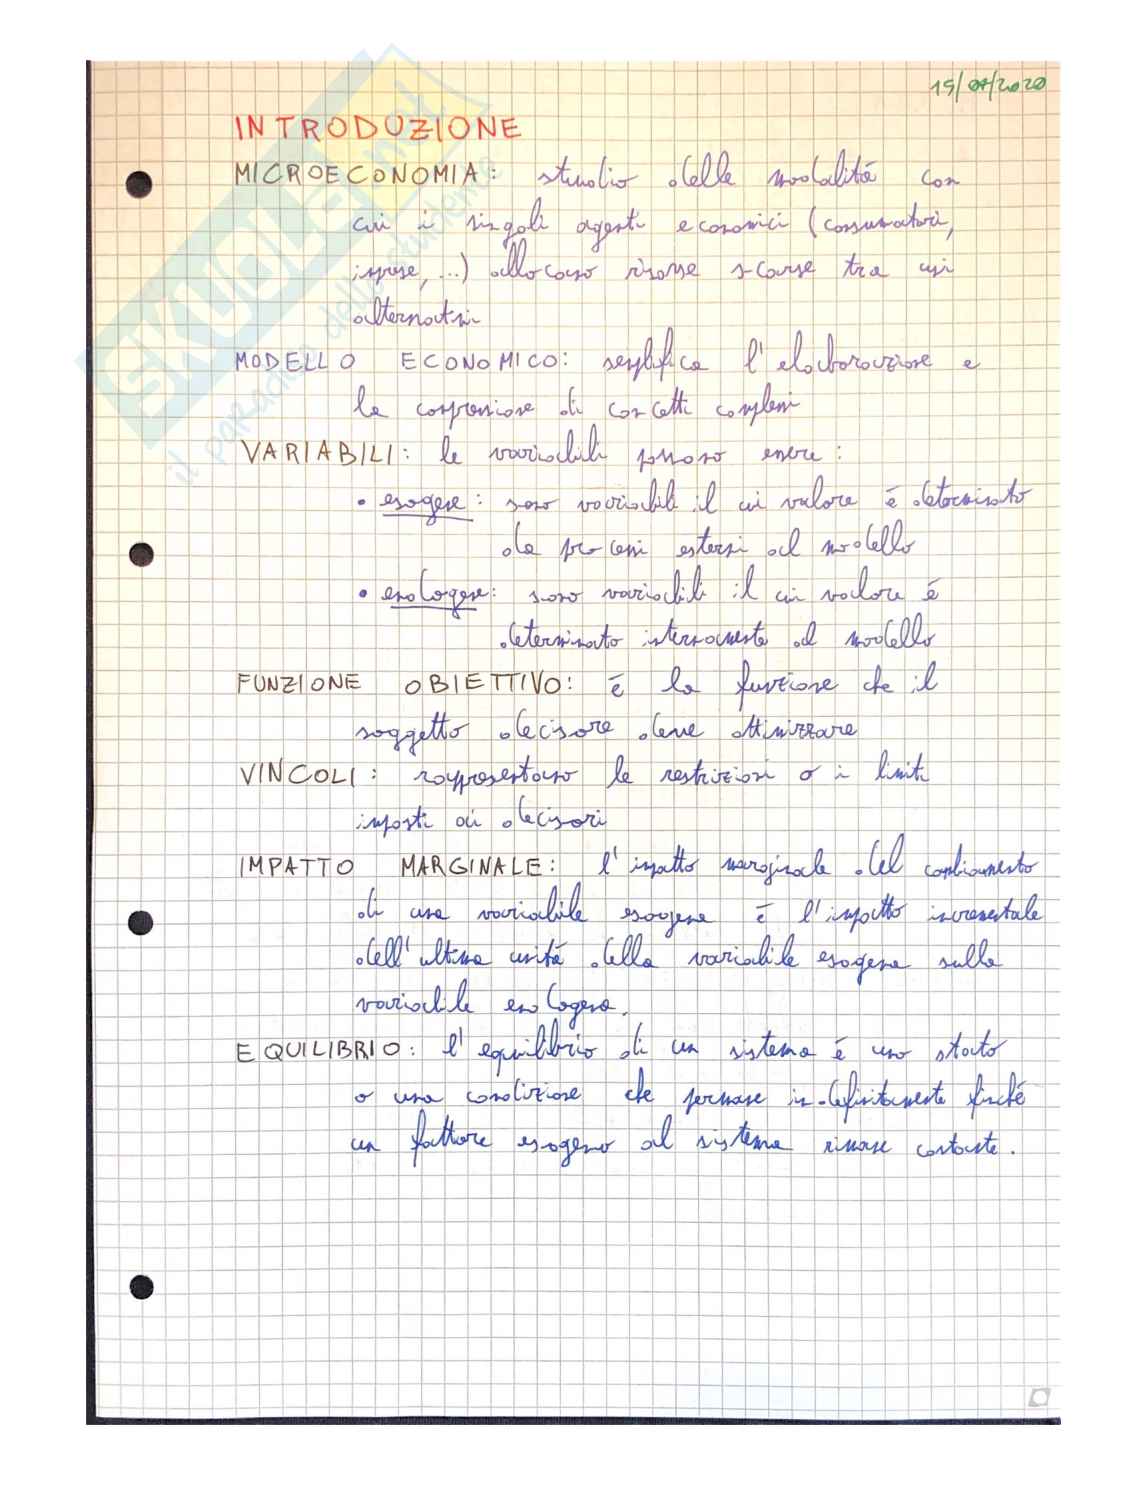 15/07/2020
INTRODUZIONE
MICROECONOMIA: studio delle modalità con
cui i singoli agenti economici (consumatori,
imprese, ...) allocano risorse scarse tra usi
alternativi
MODELLO ECONOMICO: semplifica l'elaborazione e
la comprensione di concetti complessi
VARIABILI: le variabili possono essere:
• esogene: sono variabili il cui valore è determinato
da processi esterni al modello
• endogene: sono variabili il cui valore è
determinato internamente al modello
FUNZIONE OBIETTIVO: è la funzione che il
soggetto decisore deve ottimizzare
VINCOLI: rappresentano le restrizioni o i limiti
imposti ai decisori
IMPATTO MARGINALE: l'impatto marginale del cambiamento
di una variabile esogena è l'impatto incrementale
dell'ultima unità della variabile esogena sulla
variabile endogena.
EQUILIBRIO: l'equilibrio di un sistema è uno stato
o una condizione che permane indefinitamente finché
un fattore esogeno al sistema rimane costante.
SKUOLA.net
il paradiso dello studente